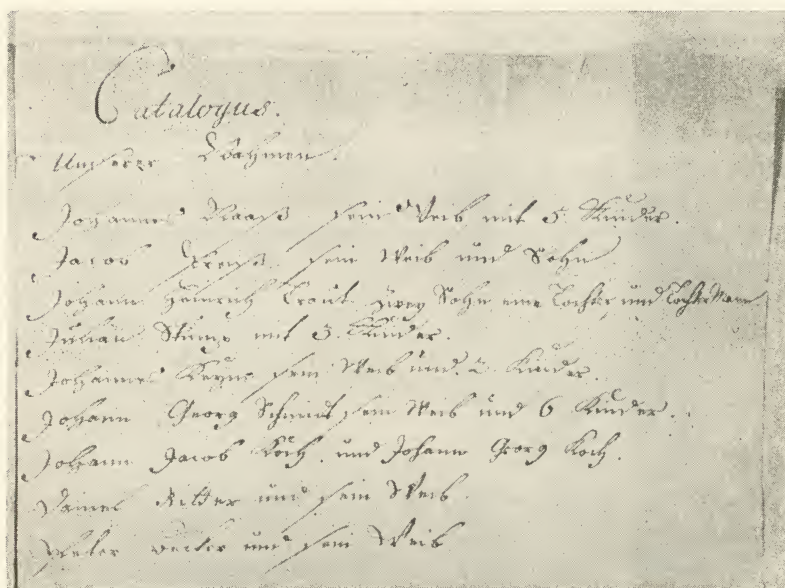 Catalogus.
Unserer Nahmen.
Johannes sein Weib mit 5. Kinder.
Jacob sein Weib und Sohn
Johann Heinrich Traut zwey Sohn eine Tochter und Tochter Mann
Julian mit 3. Kinder.
Johannes sein Weib und 2 Kinder.
Johann Georg Schmidt sein Weib und 6 Kinder.
Johann Jacob Koch. und Johann Georg Koch.
Daniel Ritter und sein Weib.
Peter und sein Weib